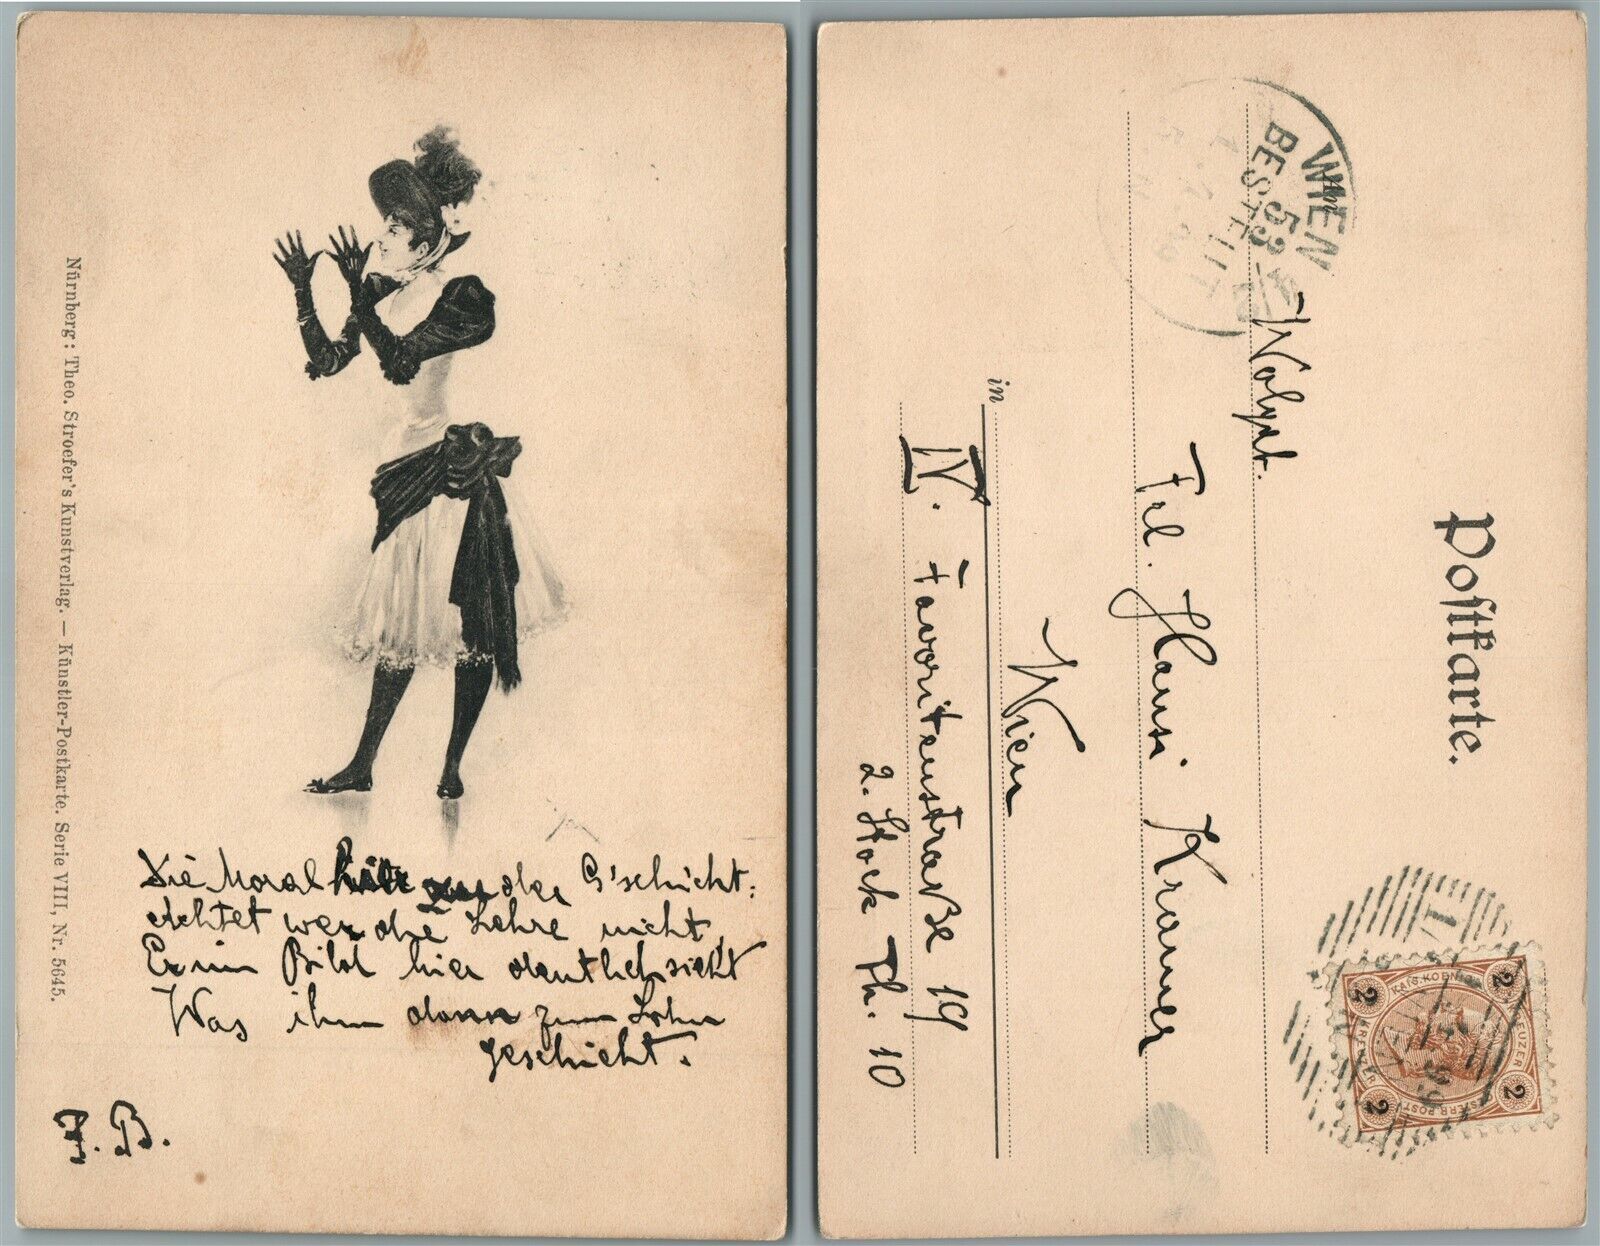 Nürnberg: Theo. Stroefer's Kunstverlag. — Künstler-Postkarte. Serie VIII, Nr. 5645.
Die Moral der G'schicht:
Achtet wer die Lehre nicht,
Er im Bild hier deutlich sieht
Was ihm dann zum Lohn
geschieht.
B.
Postkarte.
WIEN
53
BESTELLT
Wohlgeb.
Frl. Hansi Kramer
Wien
in
IV. Favoritenstraße 19
2. Stock Th. 10
KAIS. KOENIGL.
2
2
2
2
KREUZER